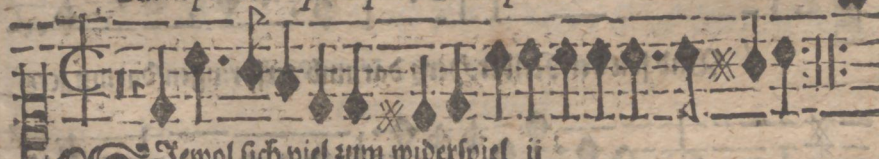 Jewol sich viel zum widerspiel ij